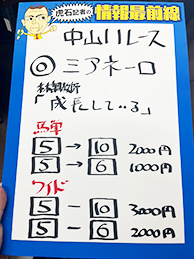 虎石記者の情報最前線
中山11レース
◎ミアネーロ
「成長している」
馬単
5→10 2000円
5→6 1000円
ワイド
5-10 3000円
5-6 2000円